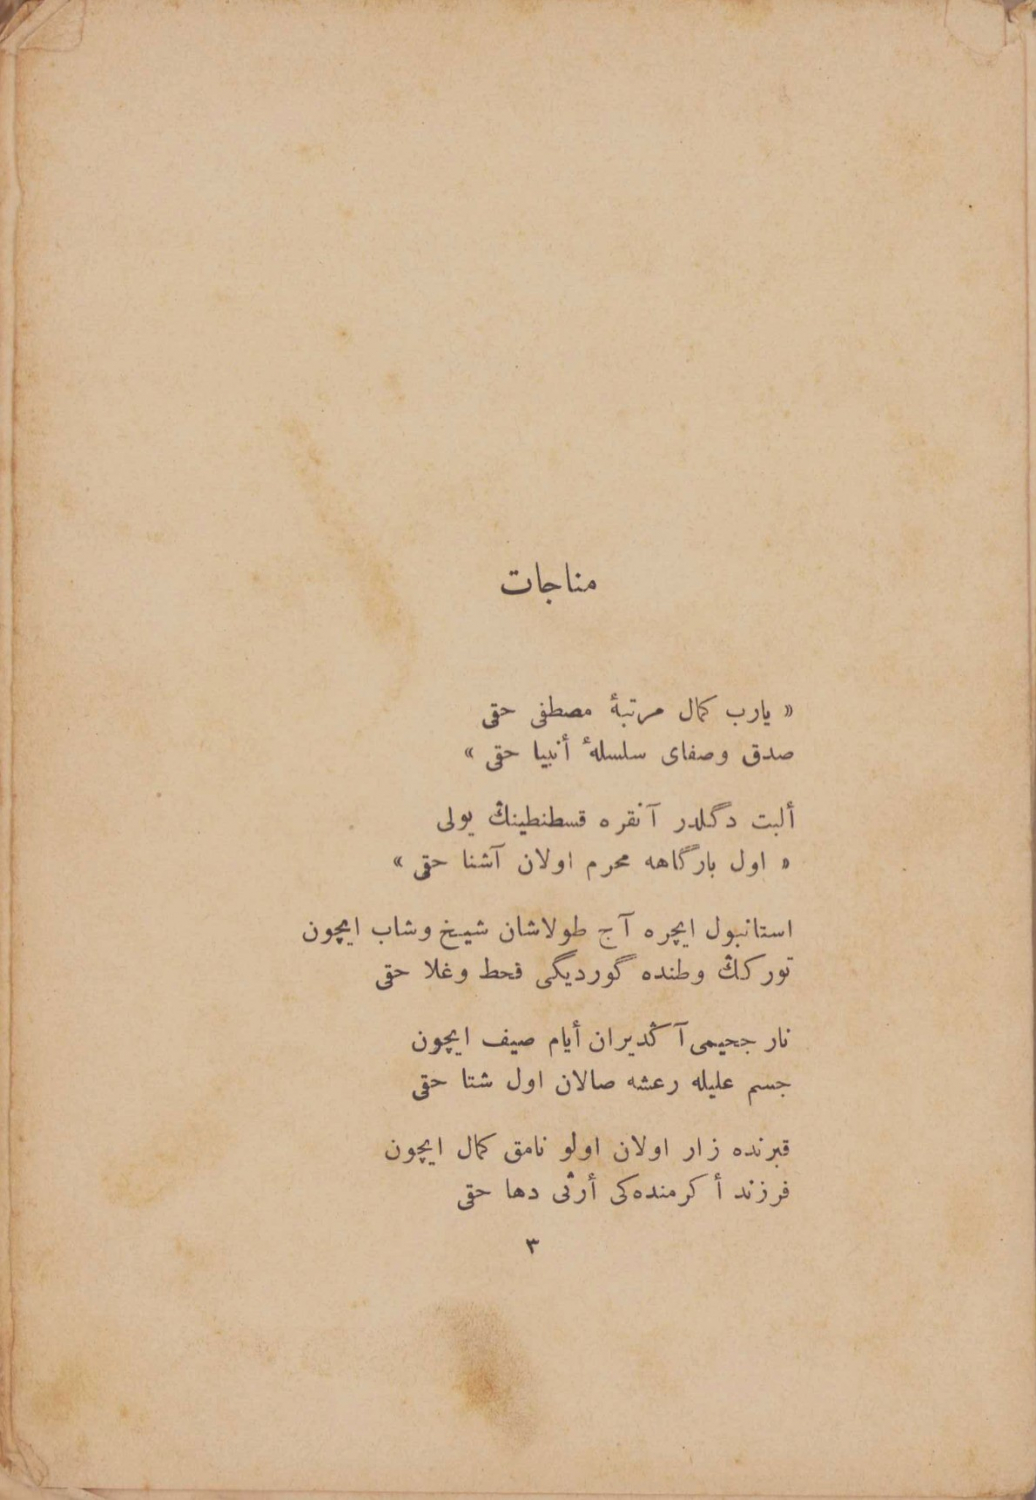 مناجات
« يارب كمال مرتبۀ مصطفى حقى
صدق وصفاى سلسلۀ أنبيا حقى »
ألبت دگلدر آنقره قسطنطينڭ يولى
« اول بارگاهه محرم اولان آشنا حقى »
استانبول ايچره آج طولاشان شيخ وشاب ايچون
توركڭ وطنده گورديگى قحط وغلا حقى
نار جحيمى آڭديران أيام صيف ايچون
جسم عليله رعشه صالان اول شتا حقى
قبرنده زار اولان اولو نامق كمال ايچون
فرزند أكرمنده‌كى أرثى دها حقى
٣